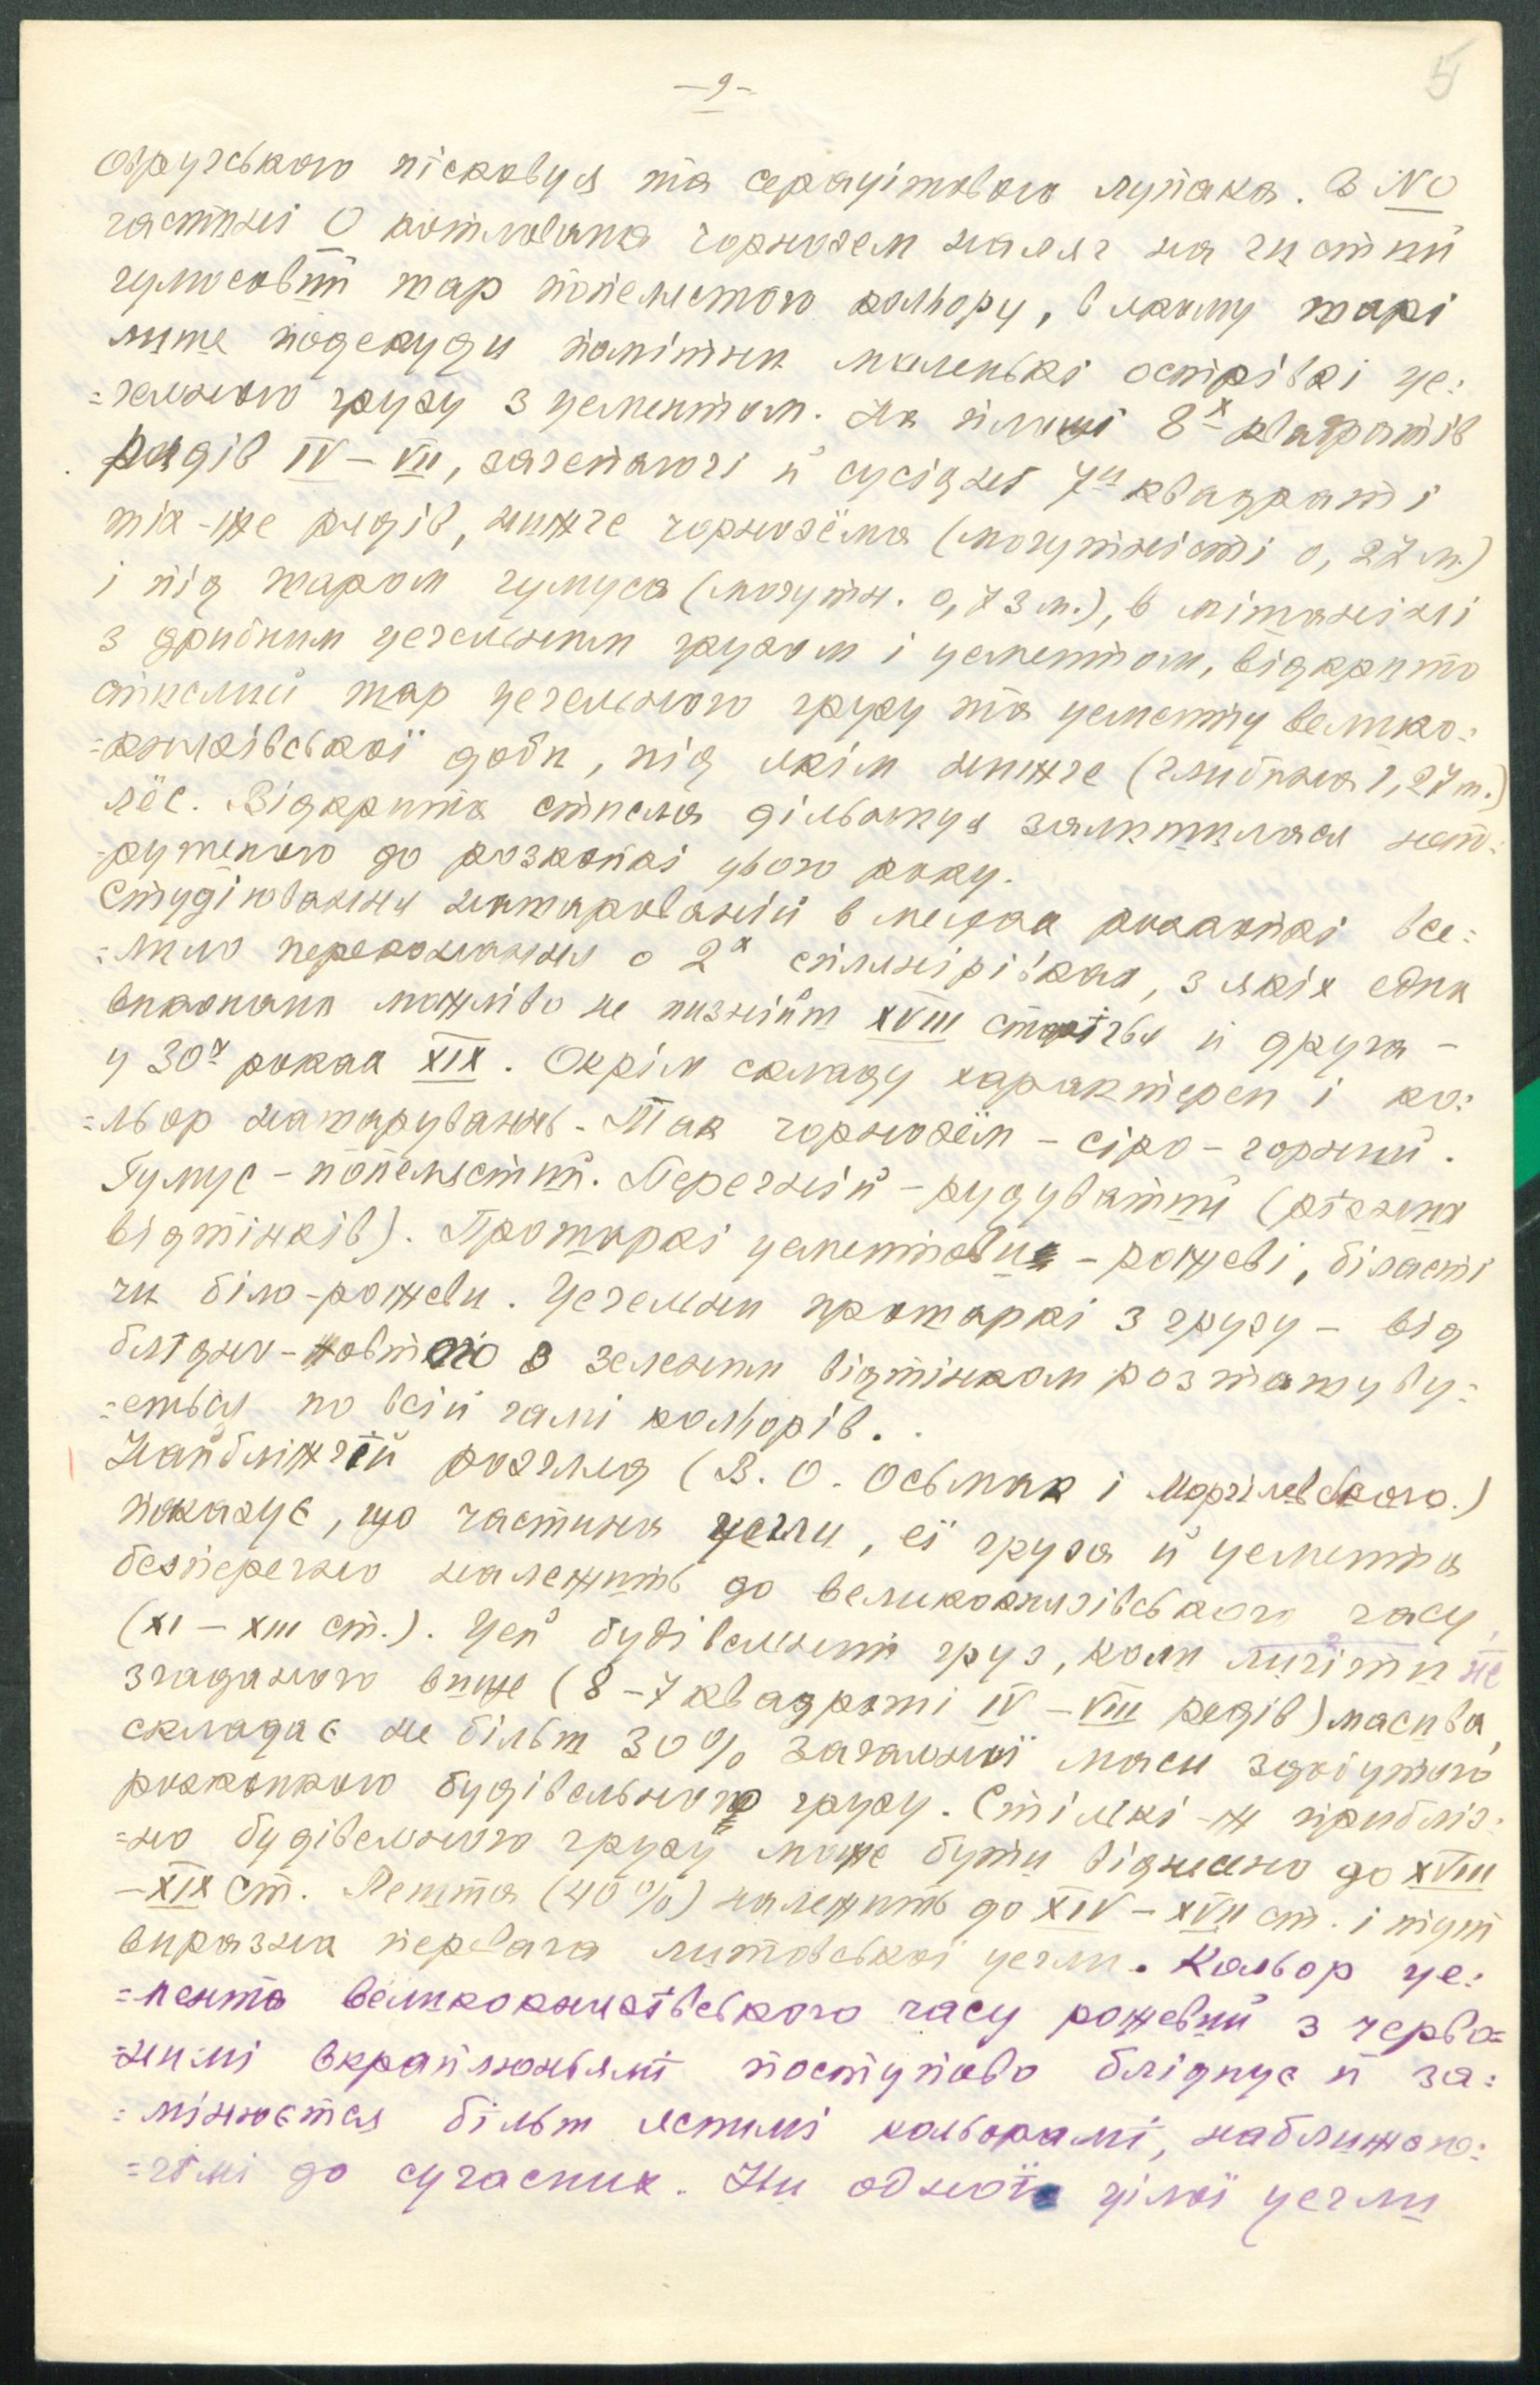 — 9 —
5
овручського пісковця та серацітового лупака. В NO
частині O котлована чорнозем наляг на чистий
гумосовий шар попелястого кольору, в якому шарі
лише подекуди помітни маленькі острівкі це=
=гельного грузу з цементом. На площі 8х квадратів
рядів IV – VII, зачепаючі й сусідні 7и квадраті
тіх-же рядів, нижче чорнозёма (могутністі 0,27 м.)
і під шаром гумуса (могутн. 0,73 м.), в мішаніні
з дрибним цегельним грузом і цементом, відкрито
стислий шар цегельного грузу та цементу велико=
=князівської доби, під якім нижче (глибина 1,27 m.)
лёс. Відкрита стисла дільниця залишилася непо=
рушеною до розкопкі цього року.
Студіювання нашарованій в межах розкопкі все=
=лило переконання о 2х сплянірівках, з якіх една
виконана можліво не пизнійш XVIII стол‍іччя й друга –
у 30х роках XIX. Окрім складу характерен і ко=
=льор нашарувань. Так чорнозём – сіро-чорний.
Гумус – попелястий. Перегній – рудуватий (ріжних
відтінків). Прошаркі цементови – рожеві, біласті
чи біло-рожеви. Цегельни прошаркі з грузу – від
блідно-жовтого з зеленим відтінком розташову=
=еться по всій гамі кольорів.
Найближчій розгляд (В. О. Осьмак і Моргілевського.)
показує, що частина цегли, еї груза й цемента
безперечно належить до великокнязівського часу
(XI – XIII ст.). Цей будівельний груз, коли лічіти не
згаданого више (8–7 квадраті IV – VIII рядів) масива,
складає не більш 30% загальної маси здобутого
розкопкою будівельного грузу. Стількі-ж прибліз=
=но будівельного грузу може бути віднесено до XVIII
– XIX ст. Решта (40%) належить до XIV – XVII ст. і тут
виразна перевага литовської цегли. Кольор це=
=мента великокнязівського часу рожевий з черво=
=німі вкрапленьямі поступово блідніє й за=
=мінюється більш ясними кольорамі, наближаю=
=чімі до сучасних. Ни одної цілої цегли